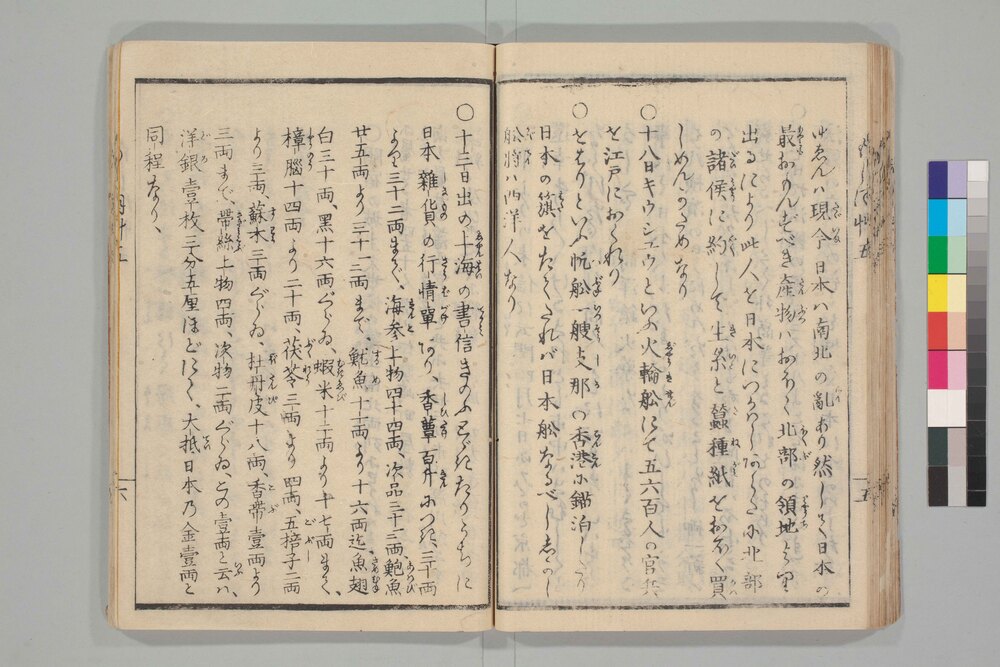 ゆゑんハ現今日本ハ南北の亂あり然して日本の
最おもんずべき産物ハおほく北部の領地より
出るにより此人を日本につかハし
の諸侯に約して生糸と蠶種紙をおほく買
しめんがためなり
〇十八日キウシユウといふ火輪舩にて五六百人の官兵
を江戸におくれり
〇といふ帆舩一艘支那の香港に錨泊し
日本の籏をたてたれバ日本舩なるべし
舩將ハ西洋人なり
〇十三日出の上海の書信きのふとゞきたりうちに
日本雜貨の行情單あり、香蕈百斤につき、三十両
より三十二両まで、海参上物四十四両、次品三十二両、鮑魚
廿五両より三十一二両まで、魷魚十二両より十六両迄、魚翅
白三十両、黒十六両ぐらゐ、蝦米十二両より十七両まで、
樟腦十四両より二十両、茯苓三両より四両、五掊子二両
より三両、蘇木三両ぐらゐ、牡丹皮十八両、香帶壹両より
三両まで、帶絲上物四両、次物二両ぐらゐ、この壹両と云ハ、
洋銀壹枚三分五厘ほどにて、大抵日本乃金壹両と
同程なり、
五
六